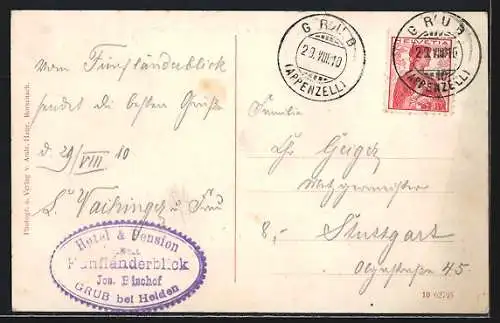 vom Fünfländerblick
sendet die besten Grüße
d. 29/VIII 10
L. Vaihinger u. Frau
Hotel & Pension
Fünfländerblick
Jos. Bischof
GRUB bei Heiden
Photogr. u. Verlag v. Aulr. Haugr, Rorschach.
GRUB
29.VIII.10
(APPENZELL)
HELVETIA
GRUB
29.VIII.10
(APPENZELL)
Familie
Chr Geiger
Metzgermeister
8,- Stuttgart
Olgastraße 45
10 62795